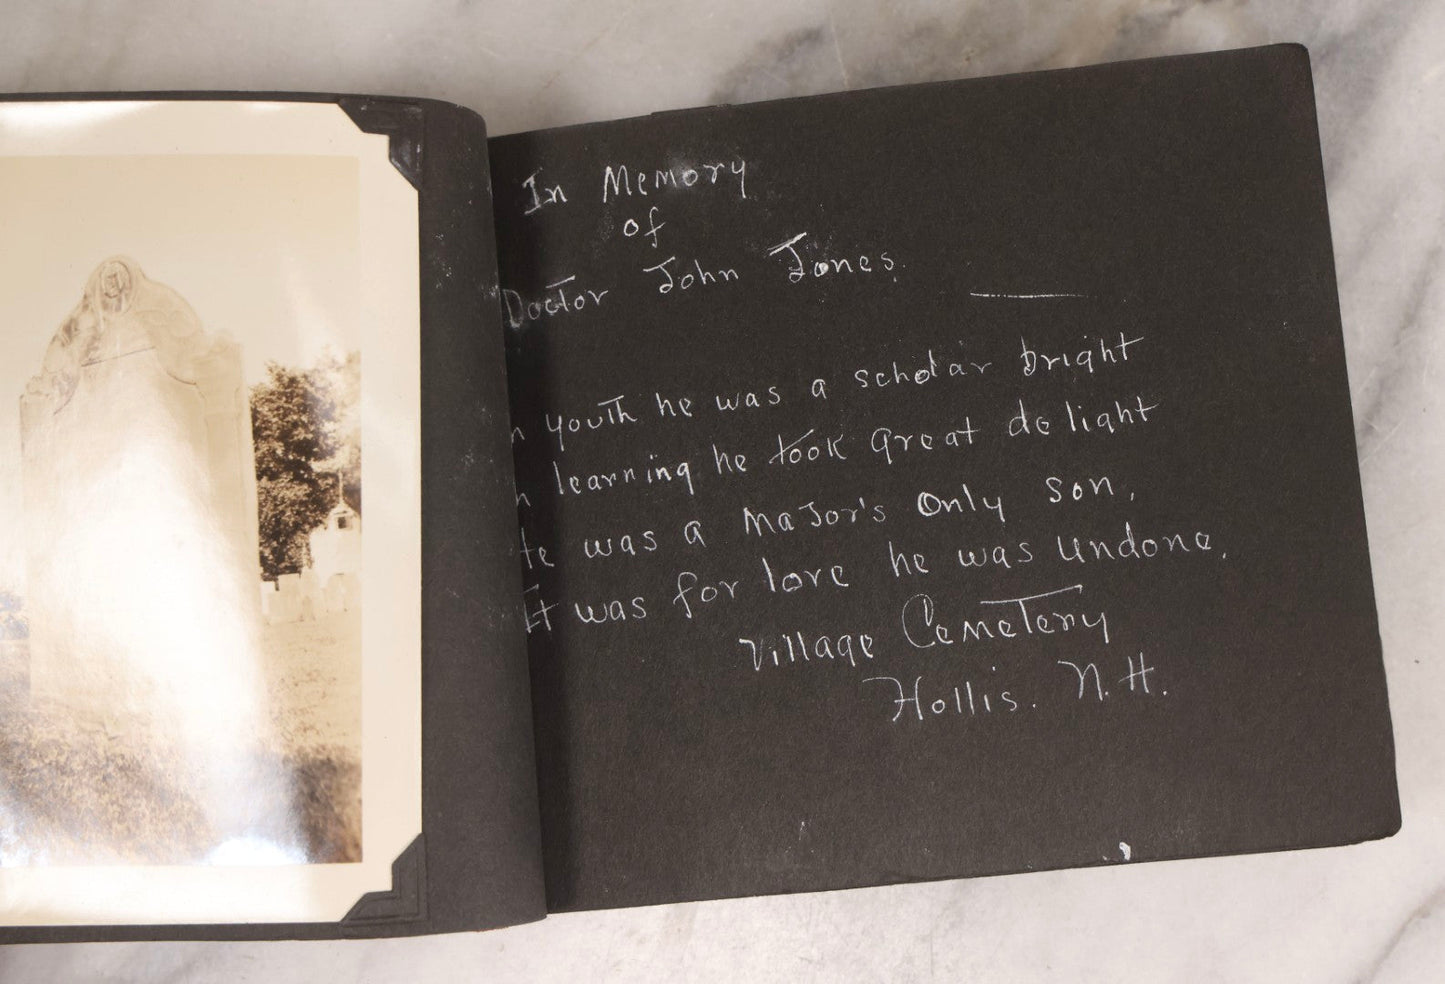 In Memory
of
Doctor John Jones.
n youth he was a scholar bright
n learning he took great delight
He was a Major's only son,
It was for love he was undone.
Village Cemetery
Hollis. N.H.